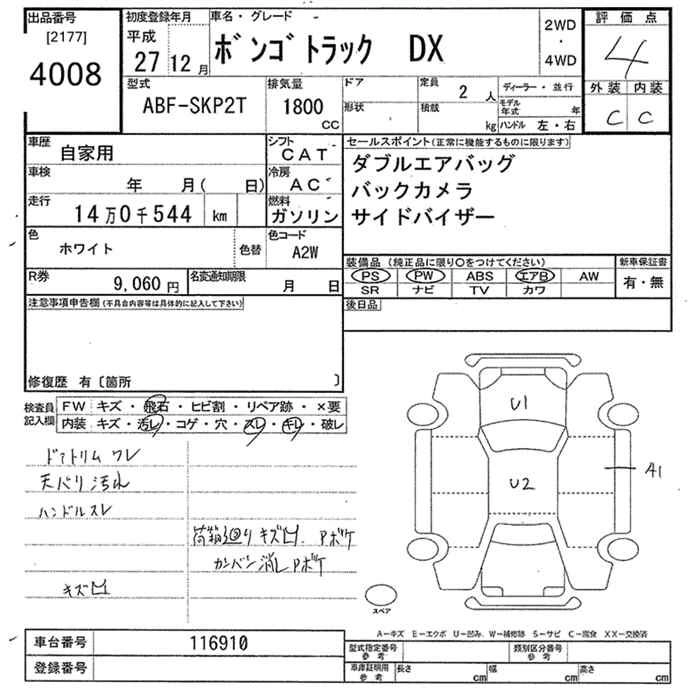 出品番号
[2177]
4008
初度登録年月
平成
27 12 月
車名・グレード
ボンゴトラック DX
2WD
・
4WD
評価点
4
外装 内装
C C
型式
ABF-SKP2T
排気量
1800
CC
ドア
形状
定員
2 人
積載
kg
ディーラー・並行
モデル年式 年
ハンドル 左・右
車歴
自家用
シフト
CAT
車検
年 月( 日)
冷房
AC
走行
14万0千544 km
燃料
ガソリン
色
ホワイト
色替
色コード
A2W
R券
9,060 円
名変通知期限
月 日
セールスポイント(正常に機能するものに限ります)
ダブルエアバッグ
バックカメラ
サイドバイザー
装備品(純正品に限り○をつけてください)
PS PW ABS エアB AW
SR ナビ TV カワ
新車保証書
有・無
後日品
注意事項申告欄(不具合内容等は具体的に記入して下さい)
修復歴 有〔箇所 〕
検査員記入欄
FW キズ・飛石・ヒビ割・リペア跡・×要
内装 キズ・汚レ・コゲ・穴・スレ・キレ・破レ
ドアトリム ワレ
天バリ汚れ
ハンドルスレ
荷箱廻り キズ凹 Pボケ
カンバン消しPボケ
キズ凹
U1
U2
A1
スペア
A-キズ E-エクボ U-凹み W-補修跡 S-サビ C-腐食 XX-交換済
車台番号
116910
登録番号
型式指定番号
参考
類別区分番号
参考
車庫証明用
参考
長さ cm 幅 cm 高さ cm